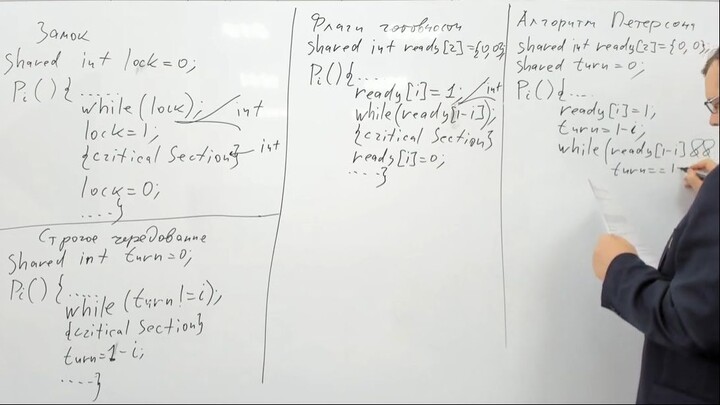 Замок
shared int lock=0;
Pi() {.....
while(lock);
int
lock=1;
{critical section}
int
lock=0;
....}
Строгое чередование
shared int turn=0;
Pi() {......
while(turn!=i);
{critical section}
turn=1-i;
....}
Флаги готовности
shared int ready[2]={0,0};
Pi() {.....
ready[i]=1;
int
while(ready[1-i]);
{critical section}
ready[i]=0;
....}
Алгоритм Петерсона
shared int ready[2]={0,0};
shared turn=0;
Pi() {....
ready[i]=1;
turn=1-i;
while(ready[1-i]&&
turn==1-